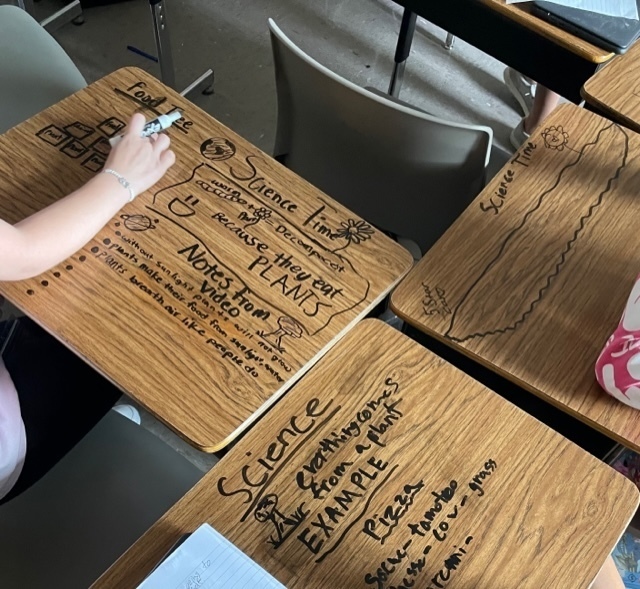 Food Fee
Food
Science Time
worms
Decomposer
Because they eat
PLANTS
Notes from
Video
without sunlight plants will not grow
plants make their food from sunlight, water
Plants breath air like people do
Science Time
Science
Everthing comes
from a plant
EXAMPLE
Pizza
tomatoe
cow - grass